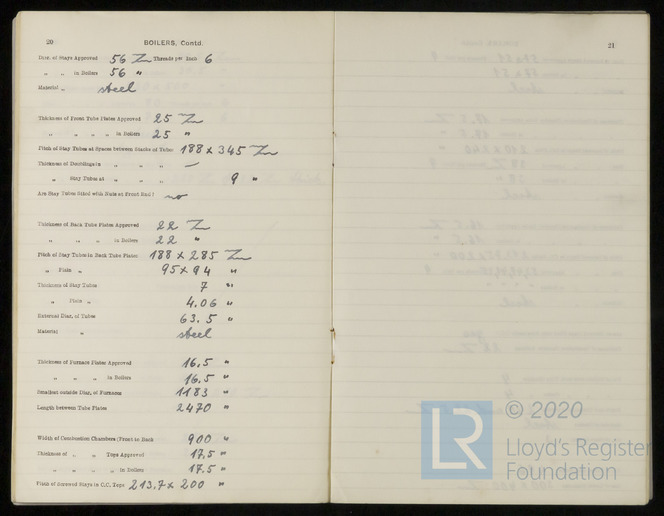 20
BOILERS, Contd.
Diar. of Stays Approved 56 Threads per Inch 6
„ „ in Boilers 56 "
Material „ steel
Thickness of Front Tube Plates Approved 25
„ „ „ „ in Boilers 25 "
Pitch of Stay Tubes at Spaces between Stacks of Tubes 188 x 345
Thickness of Doublings in „ „ „ —
„ Stay Tubes at „ „ „ 9 "
Are Stay Tubes fitted with Nuts at Front End? no
Thickness of Back Tube Plates Approved 22
„ „ „ in Boilers 22 "
Pitch of Stay Tubes in Back Tube Plates 188 x 285
„ Plain „ 95 x 94 "
Thickness of Stay Tubes 7 "
„ Plain „ 4.06 "
External Diar. of Tubes 63.5 "
Material „ steel
Thickness of Furnace Plates Approved 16.5 "
„ „ „ in Boilers 16.5 "
Smallest outside Diar. of Furnaces 1183 "
Length between Tube Plates 2470 "
Width of Combustion Chambers (Front to Back 900 "
Thickness of „ „ Tops Approved 17.5 "
„ „ „ „ in Boilers 17.5 "
Pitch of Screwed Stays in C.C. Tops 213.7 x 200 "
21
LR
© 2020
Lloyd's Register
Foundation